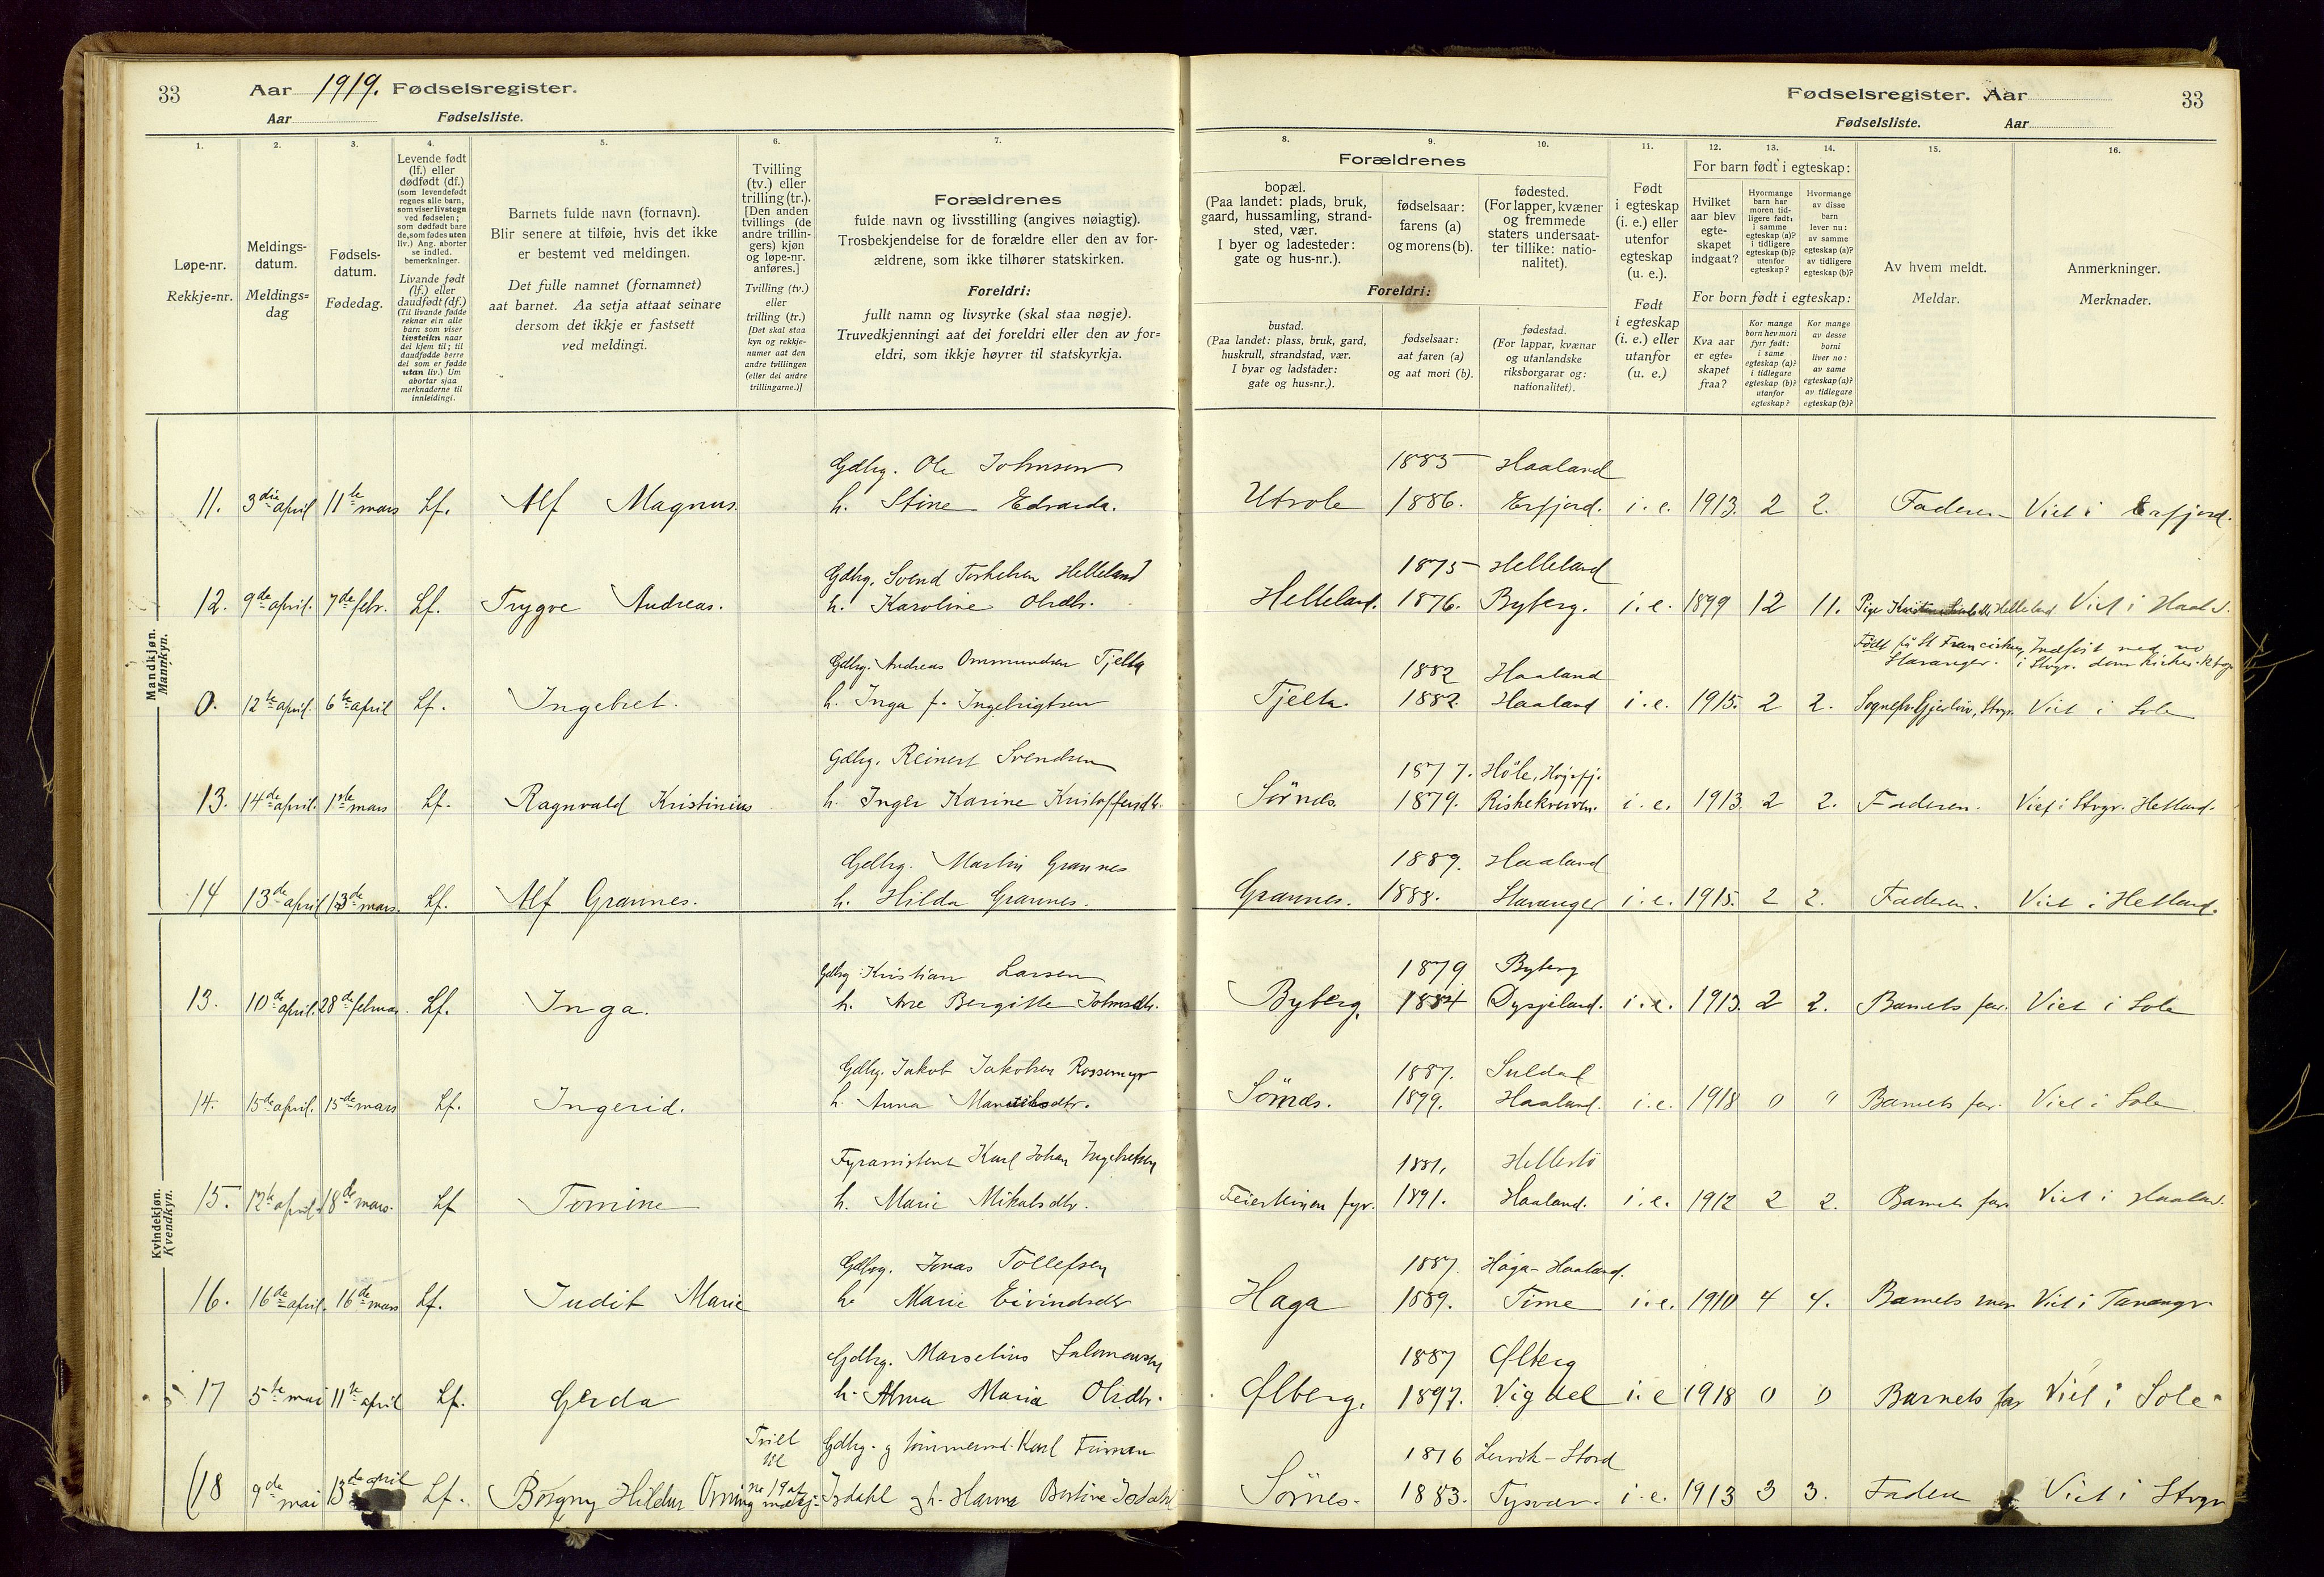 33 Aar 1919. Fødselsregister.
Aar Fødselsliste.
1.
2.
3.
4.
5.
6.
7.
Løpe-nr.
Rekkje=nr.
Meldings-
datum.
Meldings=
dag
Fødsels-
datum.
Fødedag.
Levende født
(lf.) eller
dødfødt (df.)
(som levendefødt
regnes alle barn,
som viser livstegn
ved fødselen;
som dødfødt bare
de, som fødes uten
liv.) Ang. aborter
se indled.
bemerkninger.
Livande født
(lf.) eller
daudfødt (df.)
(Til livande fødde
reknar ein alle
barn som viser
livsteikn naar
dei kjem til; til
daudfødde berre
dei som er fødde
utan liv.) Um
abortar sjaa
merknaderne til
innleidingi.
Barnets fulde navn (fornavn).
Blir senere at tilføie, hvis det ikke
er bestemt ved meldingen.
Det fulle namnet (fornamnet)
aat barnet. Aa setja attaat seinare
dersom det ikkje er fastsett
ved meldingi.
Tvilling
(tv.) eller
trilling (tr.).
[Den anden
tvillings (de
andre trillin-
gers) kjøn
og løpe-nr.
anføres.]
Tvilling (tv.)
eller
trilling (tr.)
[Det skal staa
kyn og rekkje-
numer aat den
andre tvillingen
(eller dei andre
trillingarne.)]
Forældrenes
fulde navn og livsstilling (angives nøiagtig).
Trosbekjendelse for de forældre eller den av for-
ældrene, som ikke tilhører statskirken.
Foreldri:
fullt namn og livsyrke (skal staa nøgje).
Truvedkjenningi aat dei foreldri eller den av for=
eldri, som ikkje høyrer til statskyrkja.
Fødselsregister. Aar
33
Fødselsliste. Aar
8.
9.
10.
11.
12.
13.
14.
15.
16.
Forældrenes
bopæl.
(Paa landet: plads, bruk,
gaard, hussamling, strand-
sted, vær.
I byer og ladesteder:
gate og hus-nr.).
fødselsaar:
farens (a)
og morens (b).
fødested.
(For lapper, kvæner
og fremmede
staters undersaat-
ter tillike: natio-
nalitet).
Foreldri:
bustad.
(Paa landet: plass, bruk, gard,
huskrull, strandstad, vær.
I byar og ladstader:
gate og hus=nr.).
fødselsaar:
aat faren (a)
og aat mori (b).
fødestad.
(For lappar, kvænar
og utanlandske
riksborgarar og:
nationalitet).
Født
i egteskap
(i. e.) eller
utenfor
egteskap
(u. e.).
Født
i egteskap
(i. e.) eller
utanfor
(u. e.)
For barn født i egteskap:
Hvilket
aar blev
egte-
skapet
indgaat?
Hvormange
barn har
moren tid-
ligere født:
i samme
egteskap (a)?
i tidligere
egteskap (b)?
utenfor
egteskap?
Hvormange
av disse
barn
lever nu:
av samme
egteskap (a)?
av tidligere
egteskap (b)?
For born født i egteskap:
Kva aar
er egte=
skapet
fraa?
Kor mange
born hev mori
fyrr født:
i same
egteskap (a)?
i tidlegare
egteskap (b)?
utanfor
egteskap?
Kor mange
av desse
borni
liver no:
av same
egteskap (a)?
av tidlegare
egteskap (b)?
Av hvem meldt.
Meldar.
Anmerkninger.
Merknader.
Mandkjøn.
Mannkyn.
Gdbrg. Ole Johnsen 1885 Haaland
11. 3die april 11te mars Lf. Alf Magnus. h. Stine Edvarda. Utsole 1886. Erfjord. i. e. 1913. 2 2. Faderen Viet i Erfjord.
Gdbrg. Svend Torkelsen Helleland 1875 Helleland
12. 9de april. 7de febr. Lf. Trygve Andreas. h. Karoline Olsdtr. Helleland. 1876. Byberg. i. e. 1899 12 11. Pige Helleland Viet i Haal.
Gdbrg. Andreas Ommundsen Tjelta 1882 Haaland Født på St Franciskus, Stavanger. Indført i Stvgr.
0. 12te april. 6te april Lf. Ingebret. h. Inga f. Ingebrigtsen Tjelta. 1882. Haaland i. e. 1915. 2 2. Stvgr. Viet i Sole
Gdbrg. Reinert Svendsen 1877. Høle, Høgsfj.
13. 14de april. 1ste mars Lf. Ragnvald Kristinius h. Inger Karine Kristoffersdtr. Sörnes. 1879. Riskekverven. i. e. 1913. 2 2. Faderen. Viet i Stvgr. Hetland.
Gdbrg. Martin Grannes 1889. Haaland
14 13de april 13de mars. Lf. Alf Grannes. h. Hilda Grannes. Grannes. 1888. Stavanger i. e. 1915. 2 2. Faderen. Viet i Hetland.
Kvindekjøn.
Kvendkyn.
Gdbrg. Kristian Larsen 1879 Byberg
13. 10de april. 28de februar. Lf. Inga. h. Ane Bergitte Johnsdtr. Byberg. 1884 Dysjeland. i. e. 1913. 2 2. Barnets far. Viet i Sole
Gdbrg. Jakob Jakobsen Rossemyr 1887. Suldal
14. 15de april. 15de mars Lf. Ingerid. h. Anna Sörnes. 1899. Haaland. i. e. 1918 0 " Barnets far. Viet i Sole
Fyrassistent Karl Johan Ingebretsen 1881. Hellestö
15. 12te april. 18de mars. Lf Tomine h. Marie Mikalsdtr. Feiesteinen fyr. 1891. Haaland. i. e. 1912 2 2. Barnets far Viet i Haaland.
Gdbrg. Jonas Tollefsen 1887. Haga-Haaland.
16. 16de april. 16de mars Lf. Judit Marie h. Marie Eivindsdtr Haga 1889. Time i. e. 1910 4 4. Barnets mor Viet i Tananger.
Gdbrg. Marselius Salomonsen 1887 Ølberg
17 5te mai 11te april Lf. Gerda h. Alma Maria Olsdtr. Ølberg. 1897. Vigdel i. e 1918 0 0 Barnets far Viet i Sole
Tvill til Gdbrg. og tömmerm. Karl Furman 1876 Lervik-Stord
18 9de mai 13de april Lf. Borgny Hildur Orning no 19 av mandkj. Isdahl og h. Hanna Bertine Isdahl Sörnes. 1883. Tysvær. i. e. 1913 3 3. Faderen Viet i Stvgr